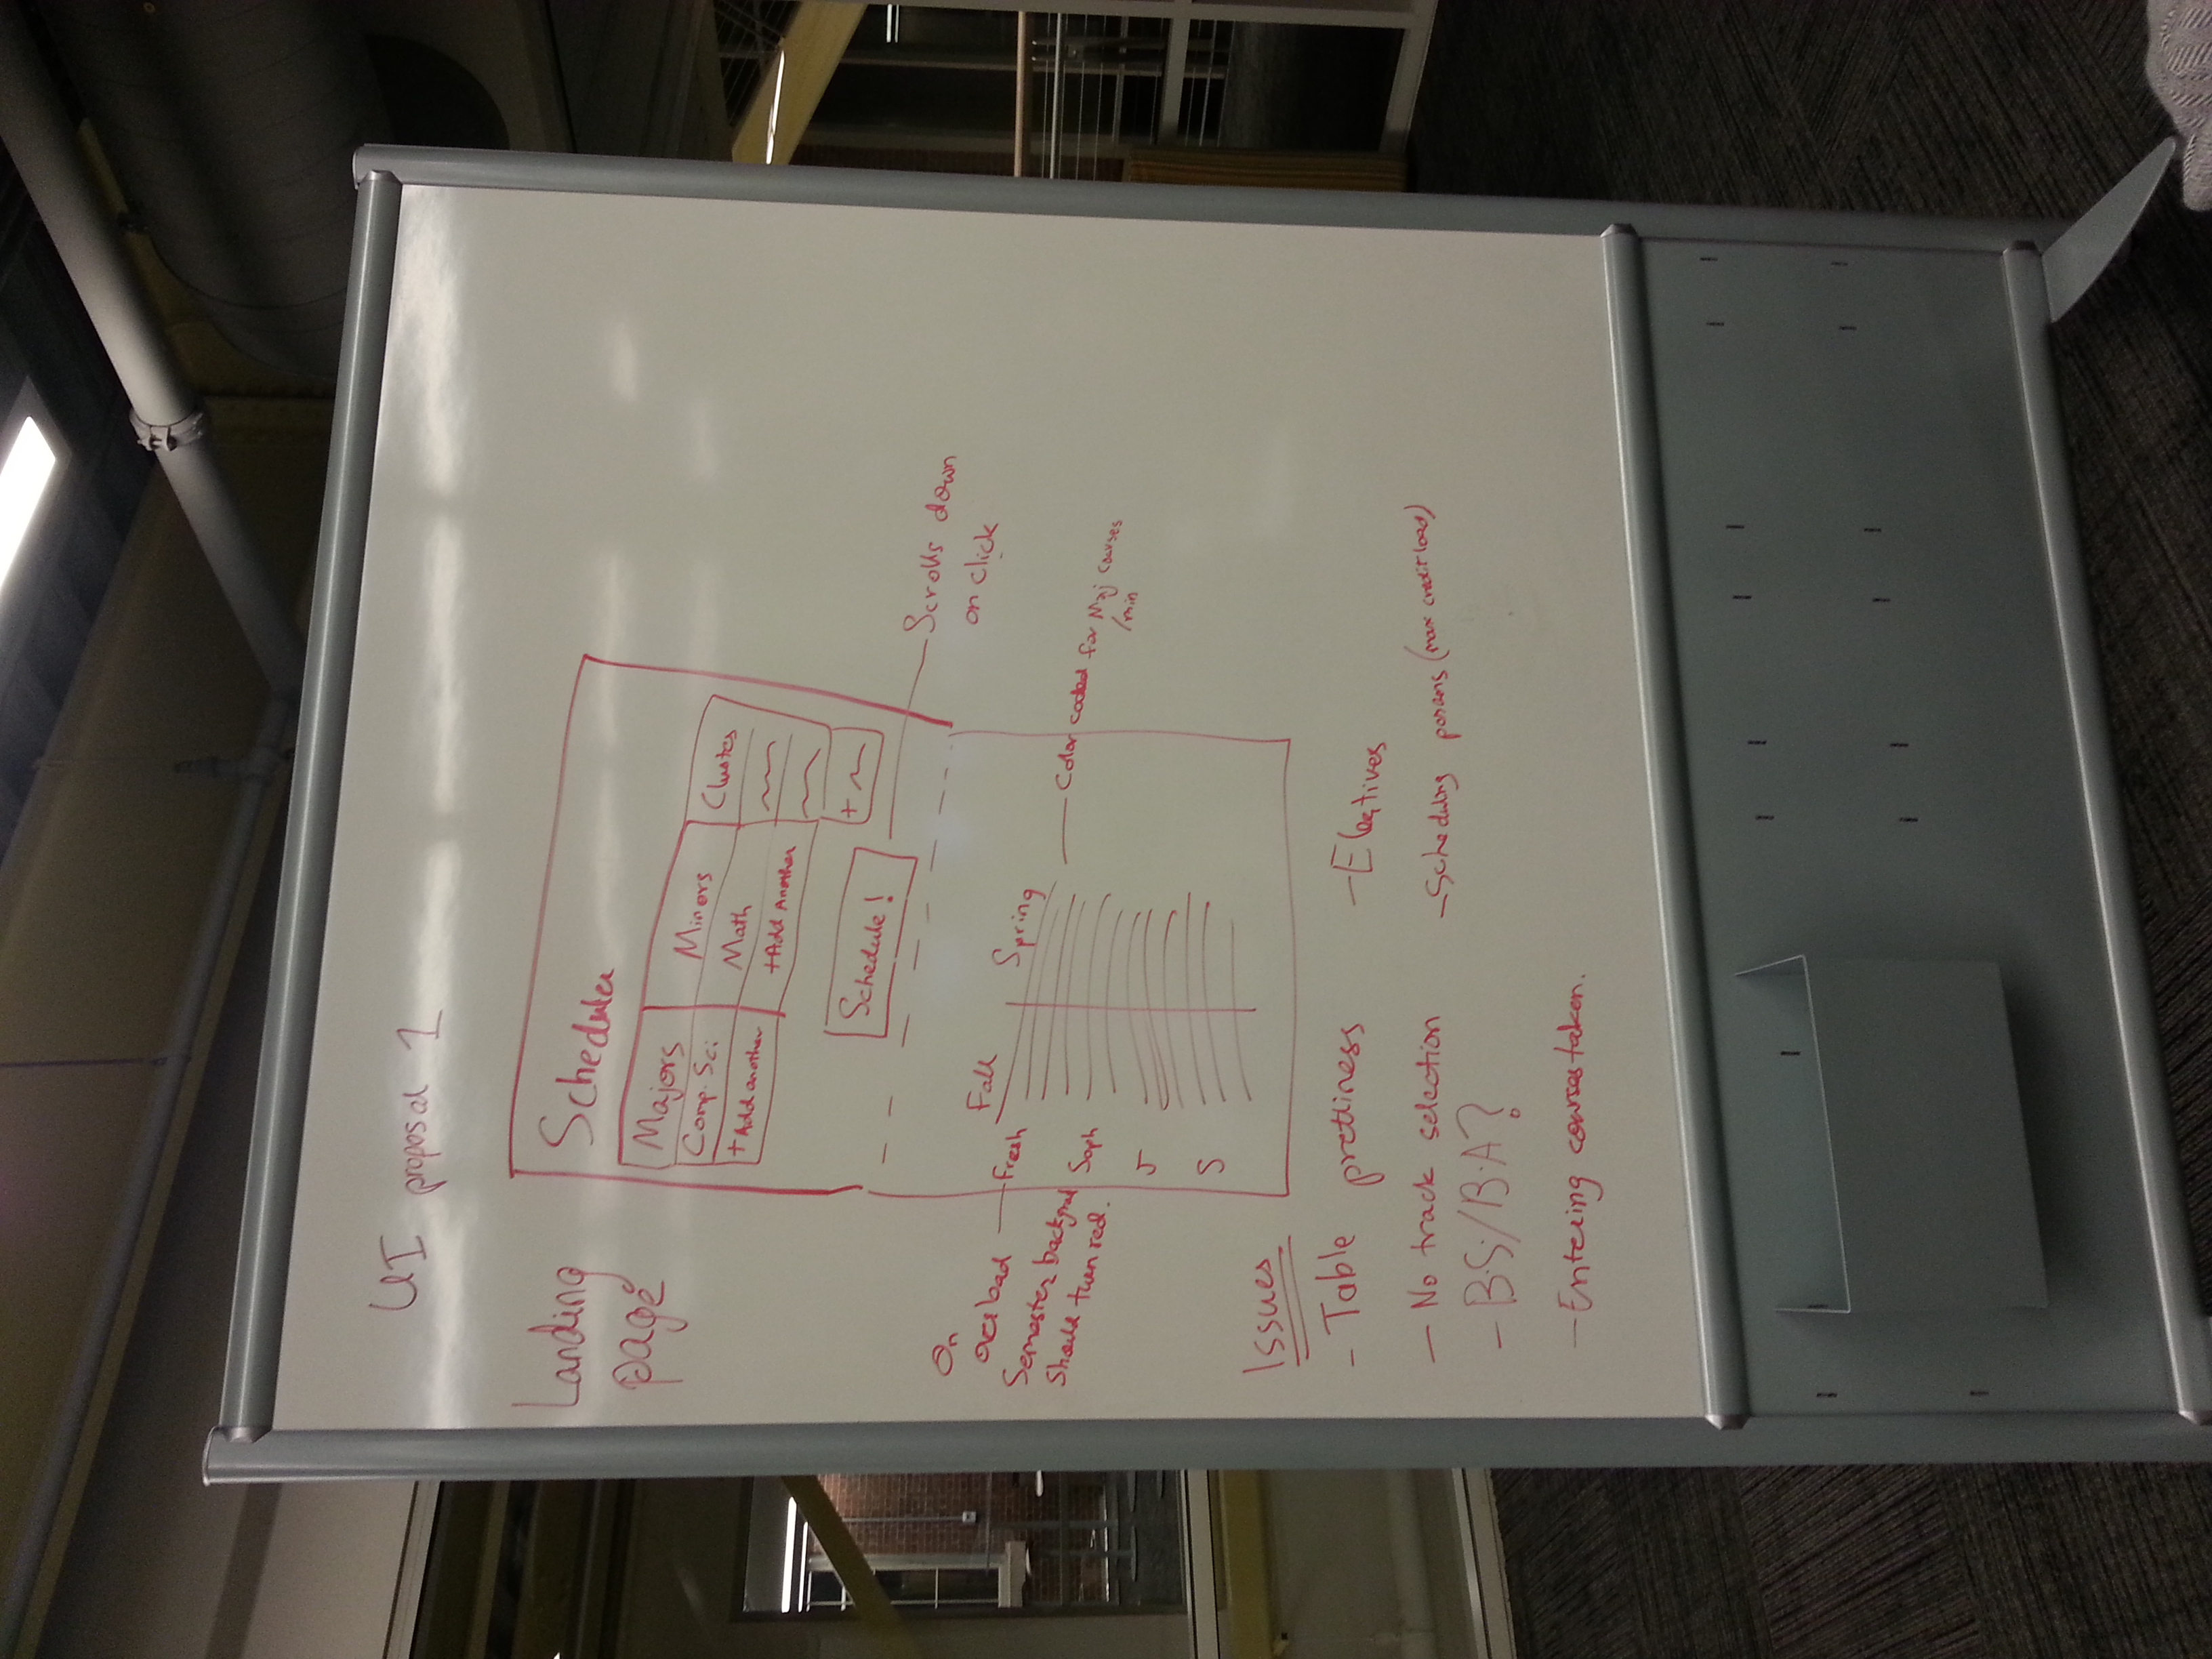 UI proposal 1
Landing
page
Scheduler
Majors Minors Clusters
Comp. Sci. Math
+ Add another +Add Another
+
Schedule!
Scrolls down
on click
On
overload
Semester backgrnd
should turn red.
Fall Spring
Fresh
Soph
J
S
Color coded for Maj courses
/min
Issues
- Table prettiness
- No track selection
- B.S./B.A?
- Entering courses taken.
- Electives
- Scheduling params (max credit load)